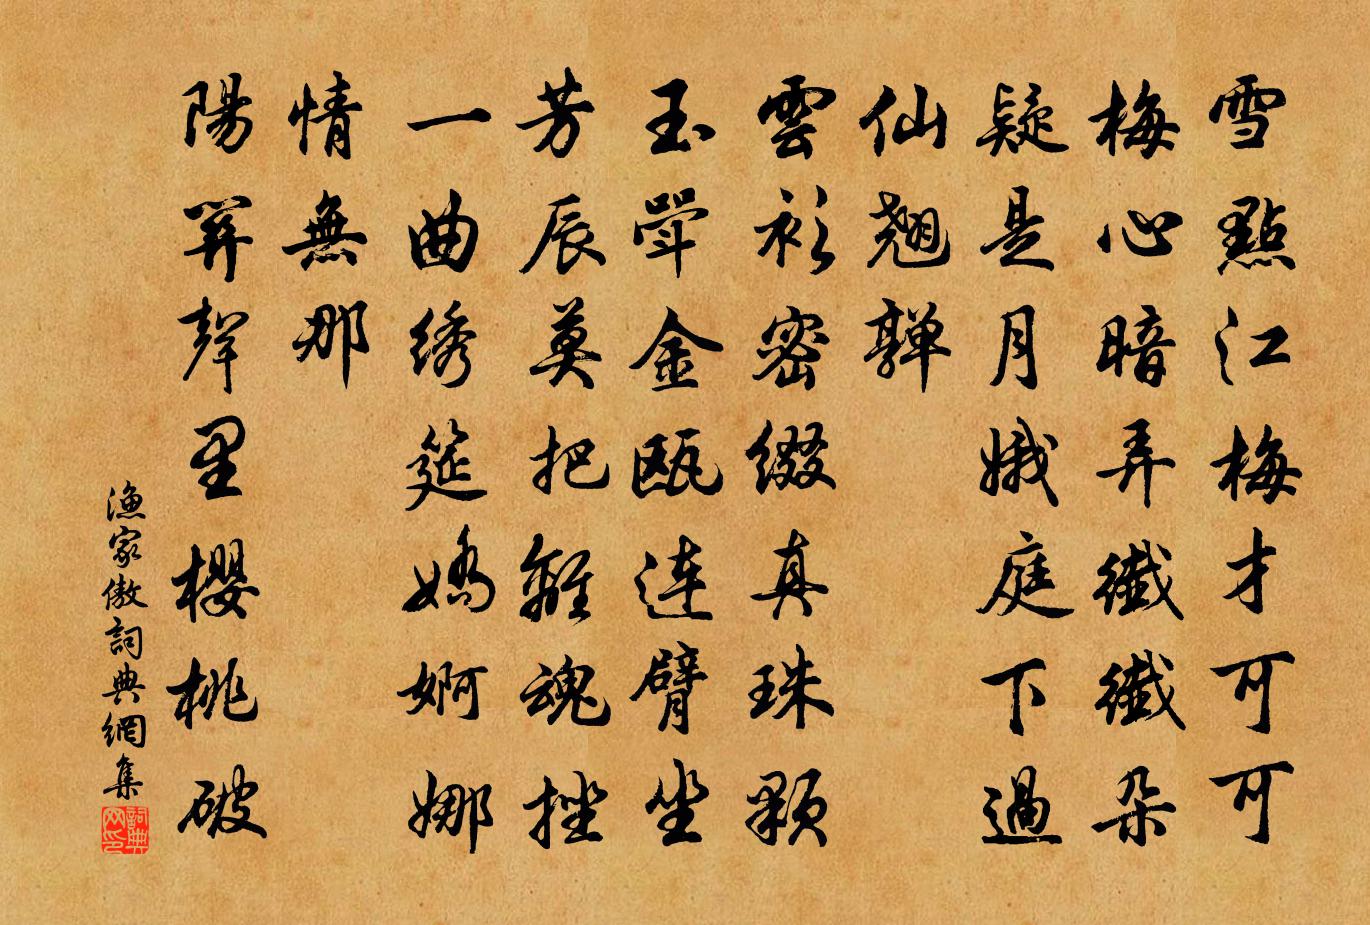 雪點江梅才可可
梅心暗弄纖纖朵
疑是月娥庭下過
仙翹嚲
雲衫密綴真珠顆
玉斝金甌連臂坐
芳辰莫把離魂挫
一曲綉筵嬌婀娜
情無那
陽關聲里櫻桃破
漁家傲詞典網集
詞典网印